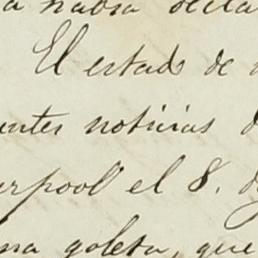 a habia decla
El estado de
entes noticias d
erpool el 8. de
na goleta, que